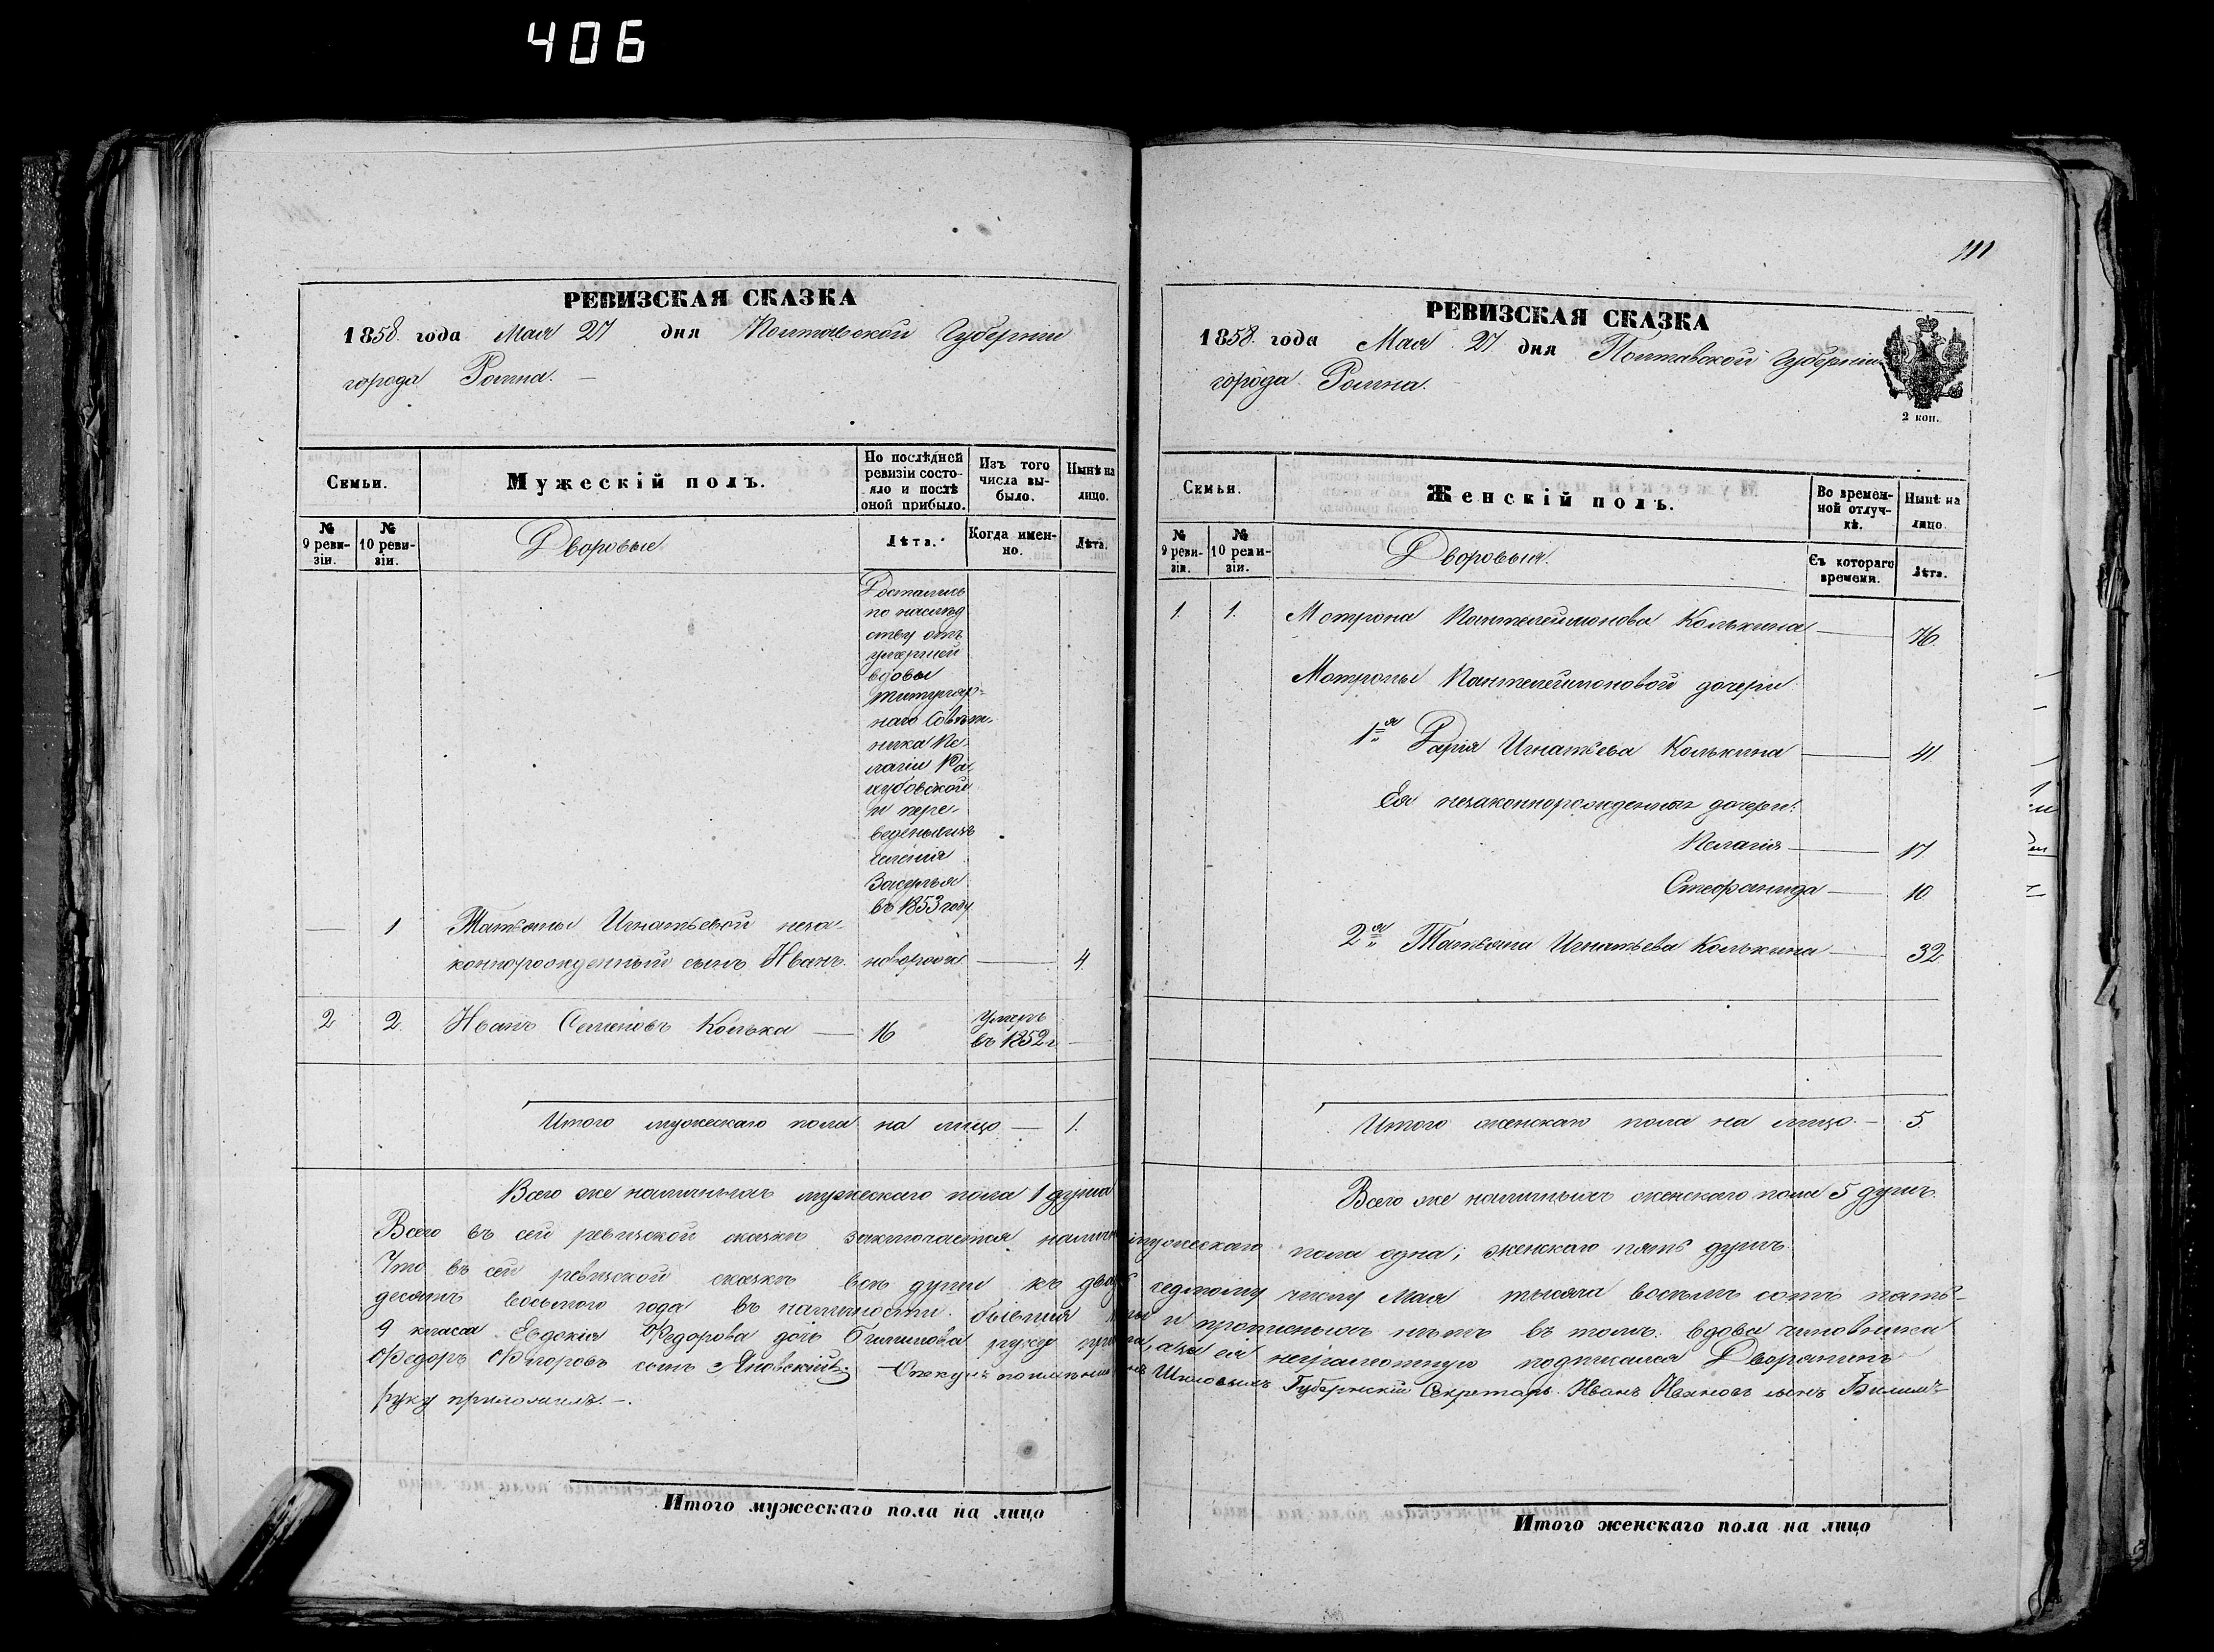 406
РЕВИЗСКАЯ СКАЗКА
1858 года Мая 27 дня Полтавской Губерніи
города Ромна. —
Семьи.
Мужескій полъ.
По послѣдней ревизіи состояло и послѣ оной прибыло.
Изъ того числа выбыло.
Нынѣ на лицо.
№ 9 ревизіи.
№ 10 ревизіи.
Дворовые
Лѣта.
Когда именно.
Лѣта.
Достались
по наслѣд
ству отъ
умершей
вдовы
Титуляр-
наго Совѣт-
ника Пе-
лагіи
и пере-
ведены изъ
селенія
Засулья
въ 1853 году
— 1 Татьяны Игнатьевой неза-
коннорожденный сынъ Иванъ. новорож. — 4.
2 2. Иванъ Семеновъ Колька — 16 Умеръ
въ 1852 г —
Итого мужескаго пола на лицо — 1.
Всего же наличныхъ мужескаго пола 1 душа
111
РЕВИЗСКАЯ СКАЗКА
1858. года Мая 27 дня Полтавской Губерніи
города Ромна.
2 коп.
Семьи.
Женскій полъ.
Во временной отлучкѣ.
Нынѣ на лицо.
№ 9 ревизіи.
№ 10 ревизіи.
Дворовыя.
Съ котораго времени.
Лѣта.
1. 1. Мотрона Пантелеймонова Колькина — 76.
Мотроны Пантелеймоновой дочери
1я Дарія Игнатьева Колькина — 41
Ея незаконнорожденныя дочери:
Пелагія — 17
Стефанида — 10
2я Татьяна Игнатьева Колькина — 32
Итого женскаго пола на лицо. — 5.
Всего же наличныхъ женскаго пола 5 душъ.
Всего въ сей ревизской сказкѣ заключается налич мужескаго пола одна; женскаго пять душъ.
Что въ сей ревизской сказкѣ всѣ души къ двад седьмому числу Мая тысяча восемь сотъ пять-
десятъ восьмого года въ наличности бывшія и прописныхъ нѣтъ въ томъ: вдова чиновника
9 класса Евдокія Федорова дочь руку а за ея неграмотную подписался Дворянинъ
Федоръ сынъ Яновскій. — Опекунъ Губернскій Секретарь Иванъ Ивановъ сынъ
руку приложилъ. —
Итого мужескаго пола на лицо
Итого женскаго пола на лицо